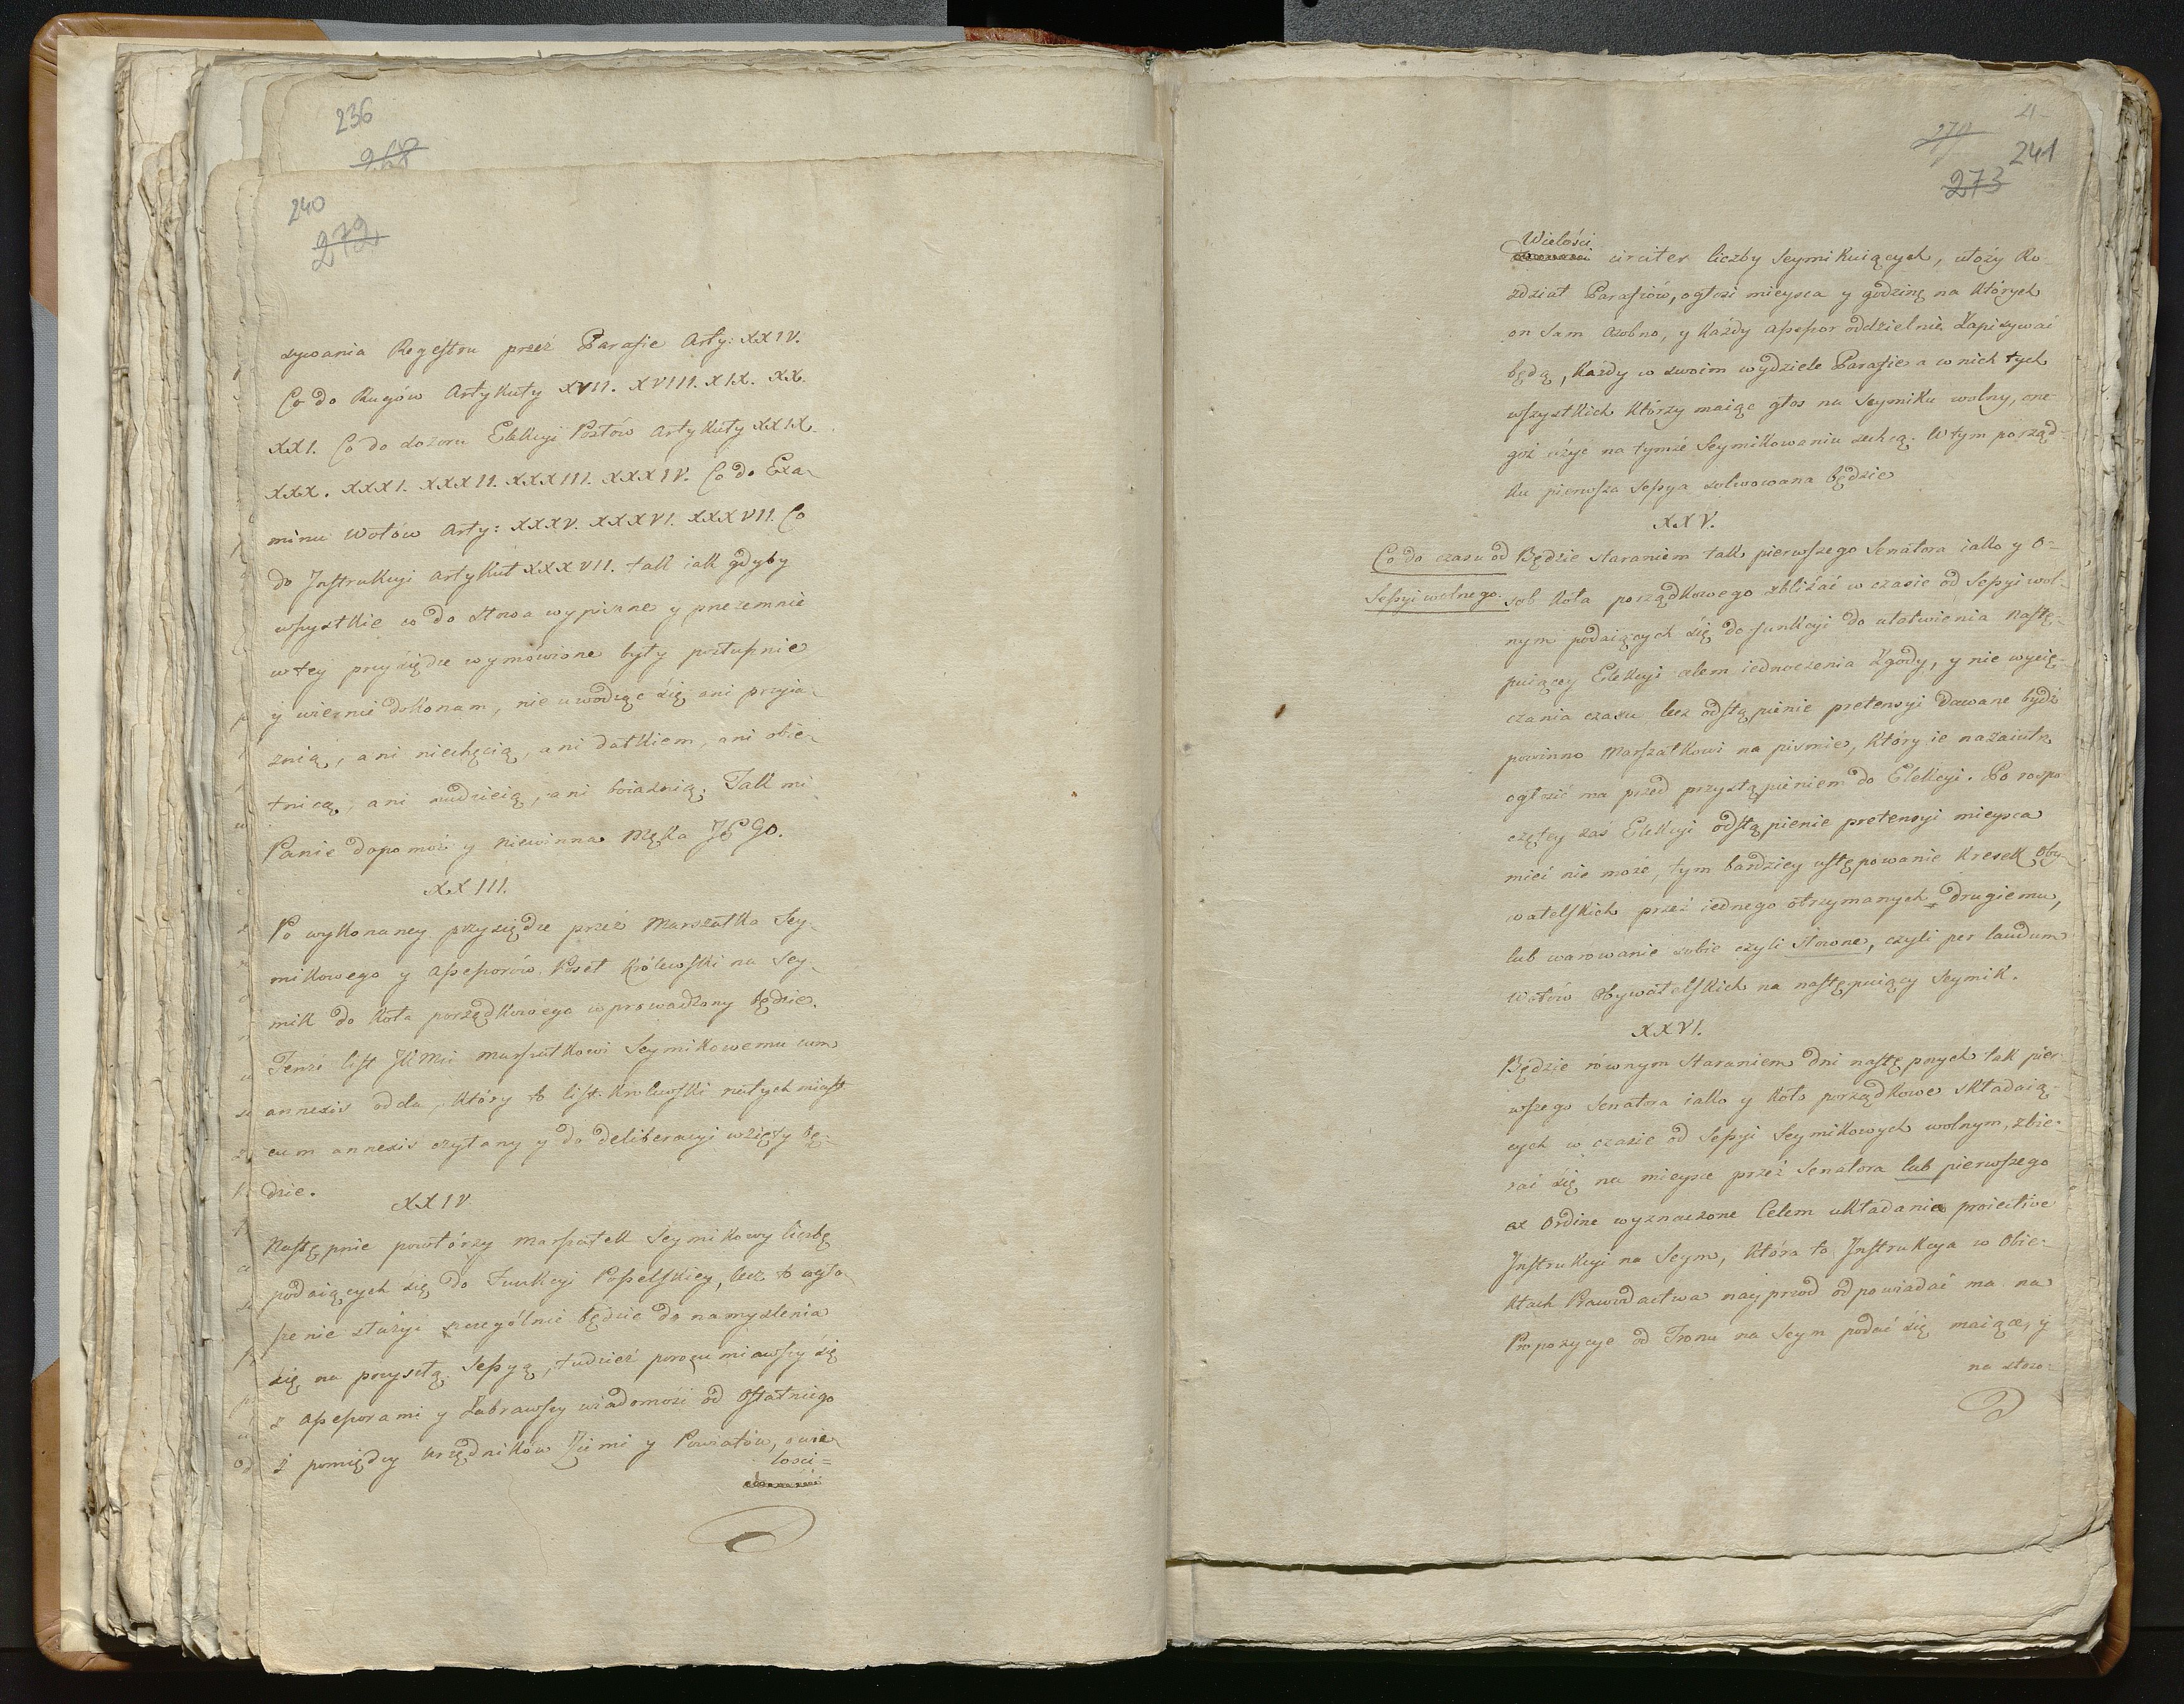 236
268
240
272
sywania Regestru przez Parafie Arty: XXIV.
Co do Rugów Artykuły XVII. XVIII. XIX. XX.
XXI. Co do dozoru Elekcyi Posłów Artykuły XXIX.
XXX. XXXI. XXXII. XXXIII. XXXIV. Co do Exa-
minu Wotów Arty: XXXV. XXXVI. XXXVII. Co
do Instrukcyi Artykuł XXXVII. tak iak gdyby
wszystkie co do słowa wypisane y przezemnie
w tey przysiędze wymówione były postępnie
y wiernie dokonam, nie uwodząc się ani przyia-
znią, ani niechęcią, ani datkiem, ani obie-
tnicą, ani nudzieią, ani boiaznią. Tak mi
Panie dopomóż y niewinna Męka JEGO.
XXIII.
Po wykonaney przysiędze przez Marszałka Sey-
mikowego y Assessorów, Poseł Królewski na Sey-
mik do Koła porządkowego wprowadzony będzie.
Tenże list JKMci Marszałkowi Seymikowemu cum
annexis odda, Który to list Królewski natychmiast
cum annexis czytany y do deliberacyi wzięty bę-
dzie.
XXIV
Następnie powtórzy Marszałek Seymikowy liczbę
podaiących się do Funkcyi Poselskiey, lecz to ogło-
szenie służyć szczególnie będzie do namyslenia
się na przyszłą Sessyą, tudzież porozumiawszy się
z Assessorami y Zabrawszy wiadomość od Ostatniego
z pomiędzy Urzędników Ziemi y Powiatów, o wie-
lości=
4
270
241
273
Wielości
circiter liczby Seymikuiących, ułoży Ro-
zdział Parafiów, ogłosi mieysca y godzinę na których
on Sam Osobno, y Każdy Assessor oddzielnie Zapisywać
będą, Każdy w swoim wydziele Parafie a w nich tych
wszystkich Którzy maiąc głos na Seymiku wolny, one-
goż użyć na tymże Seymikowaniu zechcą. W tym porząd-
ku pierwsza Sessya solwowana będzie
XXV.
Co do czasu od
Sessyi wolnego.
Będzie staraniem tak pierwszego Senatora iako y O-
sób Koła porządkowego zbliżać w czasie od Sessyi wol-
nym podaiących się do funkcyi do ułatwienia nastę-
puiącey Elekcyi celem iednoczenia Zgody, y nie wycię-
czania czasu lecz odstąpienie pretensyi dawane bydź
powinno Marszałkowi na pismie, Który ie nazaiutrz
ogłosić ma przed przystąpieniem do Elekcyi. Po rozpo-
czętey zaś Elekcyi odstąpienie pretensyi mieysca
mieć nie może, tym bardziey ustępowanie Kresek Oby-
watelskich przez iednego otrzymanych drugiemu,
lub warowanie sobie czyli słowne, czyli per laudum
Wotów Obywatelskich na następuiący Seymik.
XXVI.
Będzie równym Staraniem dni następnych tak pier-
wszego Senatora iako y Koło porządkowe składaią-
cych w czasie od Sessyi Seymikowych wolnym, zbie-
rać się na mieysce przez Senatora lub pierwszego
ex Ordine wyznaczone Celem układania proiective
Instrukcyi na Seym, Która to Instrukcya w Obie-
ktach Prawodactwa nayprzod odpowiadać ma na
Propozycye od Tronu na Seym podać się maiące, y
na stoso-